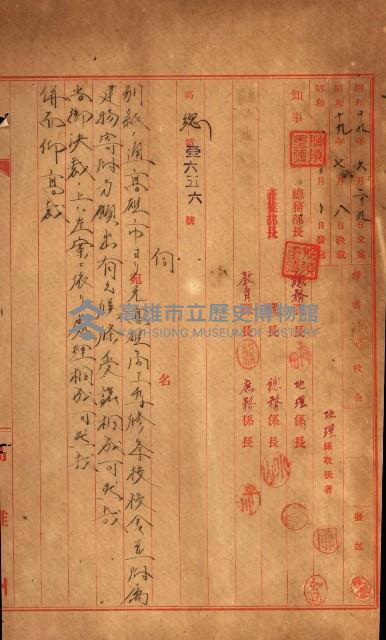 昭和十九年六月二十九日
昭和十九年七月八日決裁
昭和 年 月 日發送
淨書
校合
發送
知事
總務部長
產業部長
總務課長
教育課長
地理係長
總務係長
庶務係長
地理係取扱者
高總第壹六五六號
伺
宛
名
別紙ノ通高雄市ヨリ元高雄商工專修
學校校舍並附屬
建物寄附方願出有之候條受領相成可然哉
尚御決裁ノ上ハ左案ニ依リ處理相成可然哉
併而仰高裁
高雄市立歷史博物館
KAOHSIUNG MUSEUM OF HISTORY
高雄州